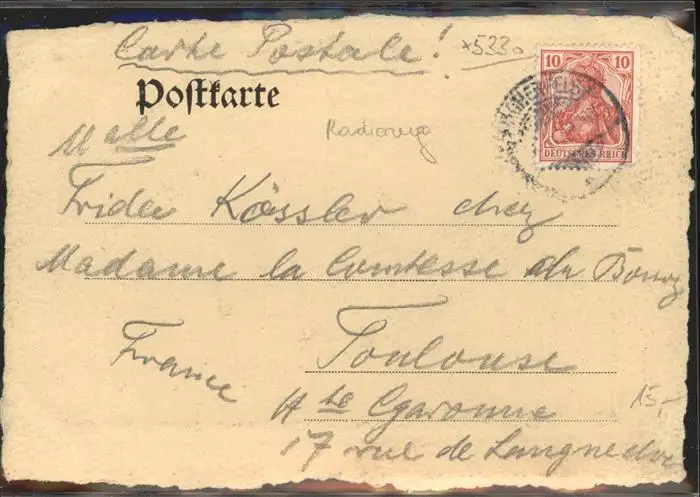 Carte Postale!
*5330
10 10
DEUTSCHES REICH
Postkarte
Radierung
Melle
Frida Kössler chez
Madame la Comtesse du Bourg
Toulouse
France
Hte Garonne
15,-
17 rue de Languedoc